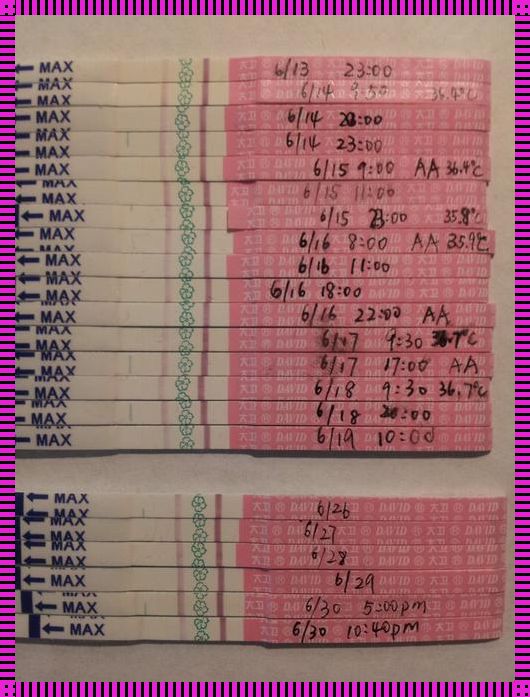 MAX 6/13 23:00
MAX 6/14 9:50 36.4℃
MAX 6/14 23:00
MAX 6/14 23:00
MAX 6/15 9:00 AA 36.4℃
MAX 6/15 11:00
MAX 6/15 23:00 35.8℃
MAX 6/16 8:00 AA 35.9℃
MAX 6/16 11:00
MAX 6/16 18:00
MAX 6/16 22:00 AA
MAX 6/17 9:30
MAX 6/17 17:00 AA
MAX 6/18 9:30 36.7℃
MAX 6/18
MAX 6/19 10:00
MAX 6/26
MAX 6/27
MAX 6/28
MAX 6/29
MAX 6/30 5:00pm
MAX 6/30 10:40pm